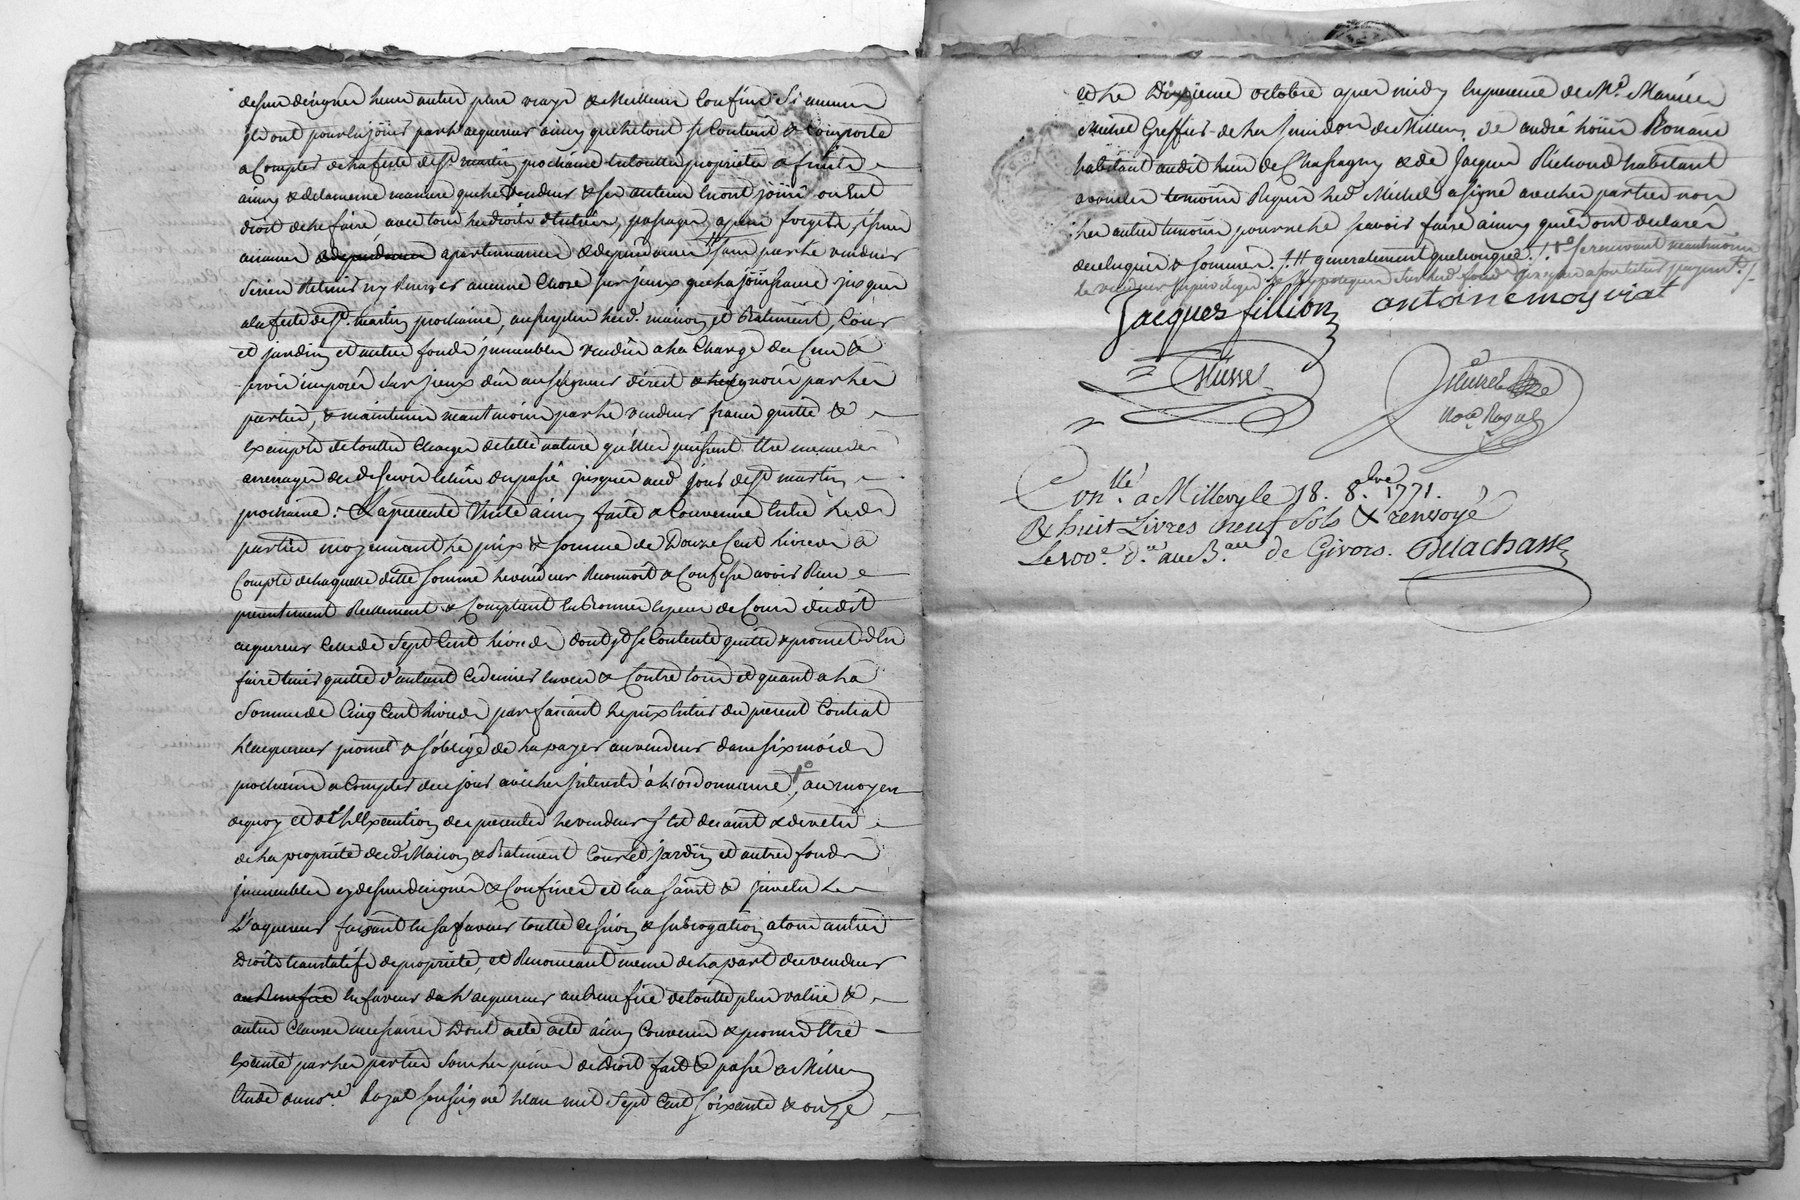 dessus désignés leurs autres plus vrays & meilleurs confins si aucuns
ils ont pour en jouir par l'acquereur ainsy que le tout se contient & comporte
a compter de la feste de St martin prochaine en toutte proprieté &
ainsy & de la meme maniere que le vendeur & ses auteurs en ont joui ou eut
droit de le faire avec tous les droits d'entrées, passages,
aisances appartenances & dependances sans par le vendeur
s'en rien retenir ny reserver aucune chose sur jceux que la jouissance jusques
a la feste de St. martin prochaine, au surplus lesd. maison et batiment, cour
et jardin et autres fonds jmmeubles vendus a la charge des cens &
servis imposés sur jceux dus au seigneur direct par les
parties, & maintenus neantmoins par le vendeur francs quittes &
exempts de touttes charges de cette nature qu'elles puissent etre meme des
arrerages desd. servis echus du passé jusques aud. jour de St martin
prochaine. La presente vente ainsy faite & convenue entre lesd.
parties moyennant le prix & somme de Douze cent livres a
compte de laquelle ditte somme le vendeur reconnoit & confesse avoir reçu
presentement reellement & comptant en bonnes especes de cours dudit
acquereur celle de sept cent livres dont il se contente quitte & promet d'en
faire tenir quitte d'autant ce dernier envers & contre tous et quant a la
somme de cinq cent livres parfaisant le prix entier du present contrat
l'acquereur promet & s'oblige de la payer au vendeur dans six mois
prochains a compter de ce jour avec les interets a l'ordonnance, au moyen
de quoy et de l'execution des presentes le vendeur s'est demis & devetu
de la proprieté desd. Maison & Batiment cour et jardin et autres fonds
jmmeubles cy dessus designés & confinés et en a saisi & jnvetu
L'acquereur faisant en sa faveur toutte cession & subrogation a tous autres
Droits translatifs de proprieté, et Renonceant meme de la part du vendeur
au Benefice en faveur de l'acquereur au benefice de toutte plus value &
autres clauses necessaires Dont acte acte ainsy convenu & promis etre
executé par les parties sous les peines de droit fait & passé a Millery
Etude du nore. Royal soussigné l'an mil sept cent soixante & onze
et le Dixieme octobre apres midy en presence de Mr.
Michel Greffier de la jurisdiction de Millery de andré
habitant audit lieu de Chassagny & de Jacques Richond habitant
temoins Requis led. Michel a signé avec les parties non
les autres temoins pour ne le savoir faire ainsy qu'ils ont declaré
de ce enquis & sommés. /. # generalement quelconques. /. se reservant neantmoins
le vendeur le privilege & hypoteque sur lesd. fonds jusques a parfait payement. /.
Jacques fillion antoine moyriat
Michel
Nore. Royal
Conllé. a Millery le 18. 8bre 1771.
R huit Livres neuf sols & renvoyé
Le 100e. dr. au Bau de Givors. Delachasse